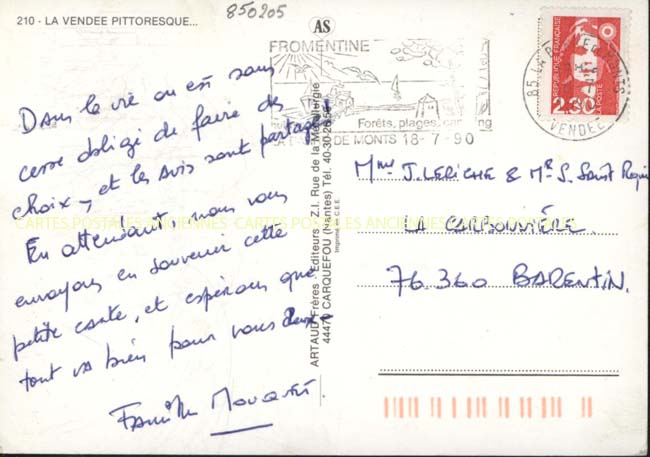 850205
210 - LA VENDEE PITTORESQUE...
AS
FROMENTINE
Forêts, plages, camping
DE MONTS 18-7-90
REPUBLIQUE FRANÇAISE
2,30
LA POSTE
VENDEE
Dans la vie on est sans
cesse obligé de faire des
choix, et les avis sont partagés!
En attendant, nous vous
envoyons en souvenir cette
petite carte, et espérons que
tout va bien pour vous deux.
Famille
ARTAUD Frères - Editeurs - Z.I. Rue de la Métallurgie
44470 CARQUEFOU (Nantes) Tél. 40-30-26
Imprimé en C.E.E.
Mme J. LERICHE & Mr S. Saint
LA CARBONNIÈRE
76360 BARENTIN.
CARTES POSTALES ANCIENNES CARTES POSTALES ANCIENNES CARTES POSTALES ANCIENNES